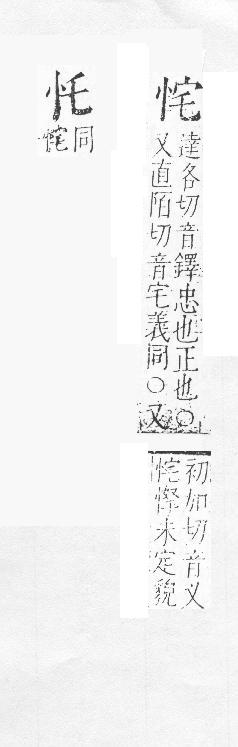 㤞
達各切音鐸忠也正也○
又直陌切音宅義同○又
初加切音义
㤞㦅未定貌
忹
㤞同